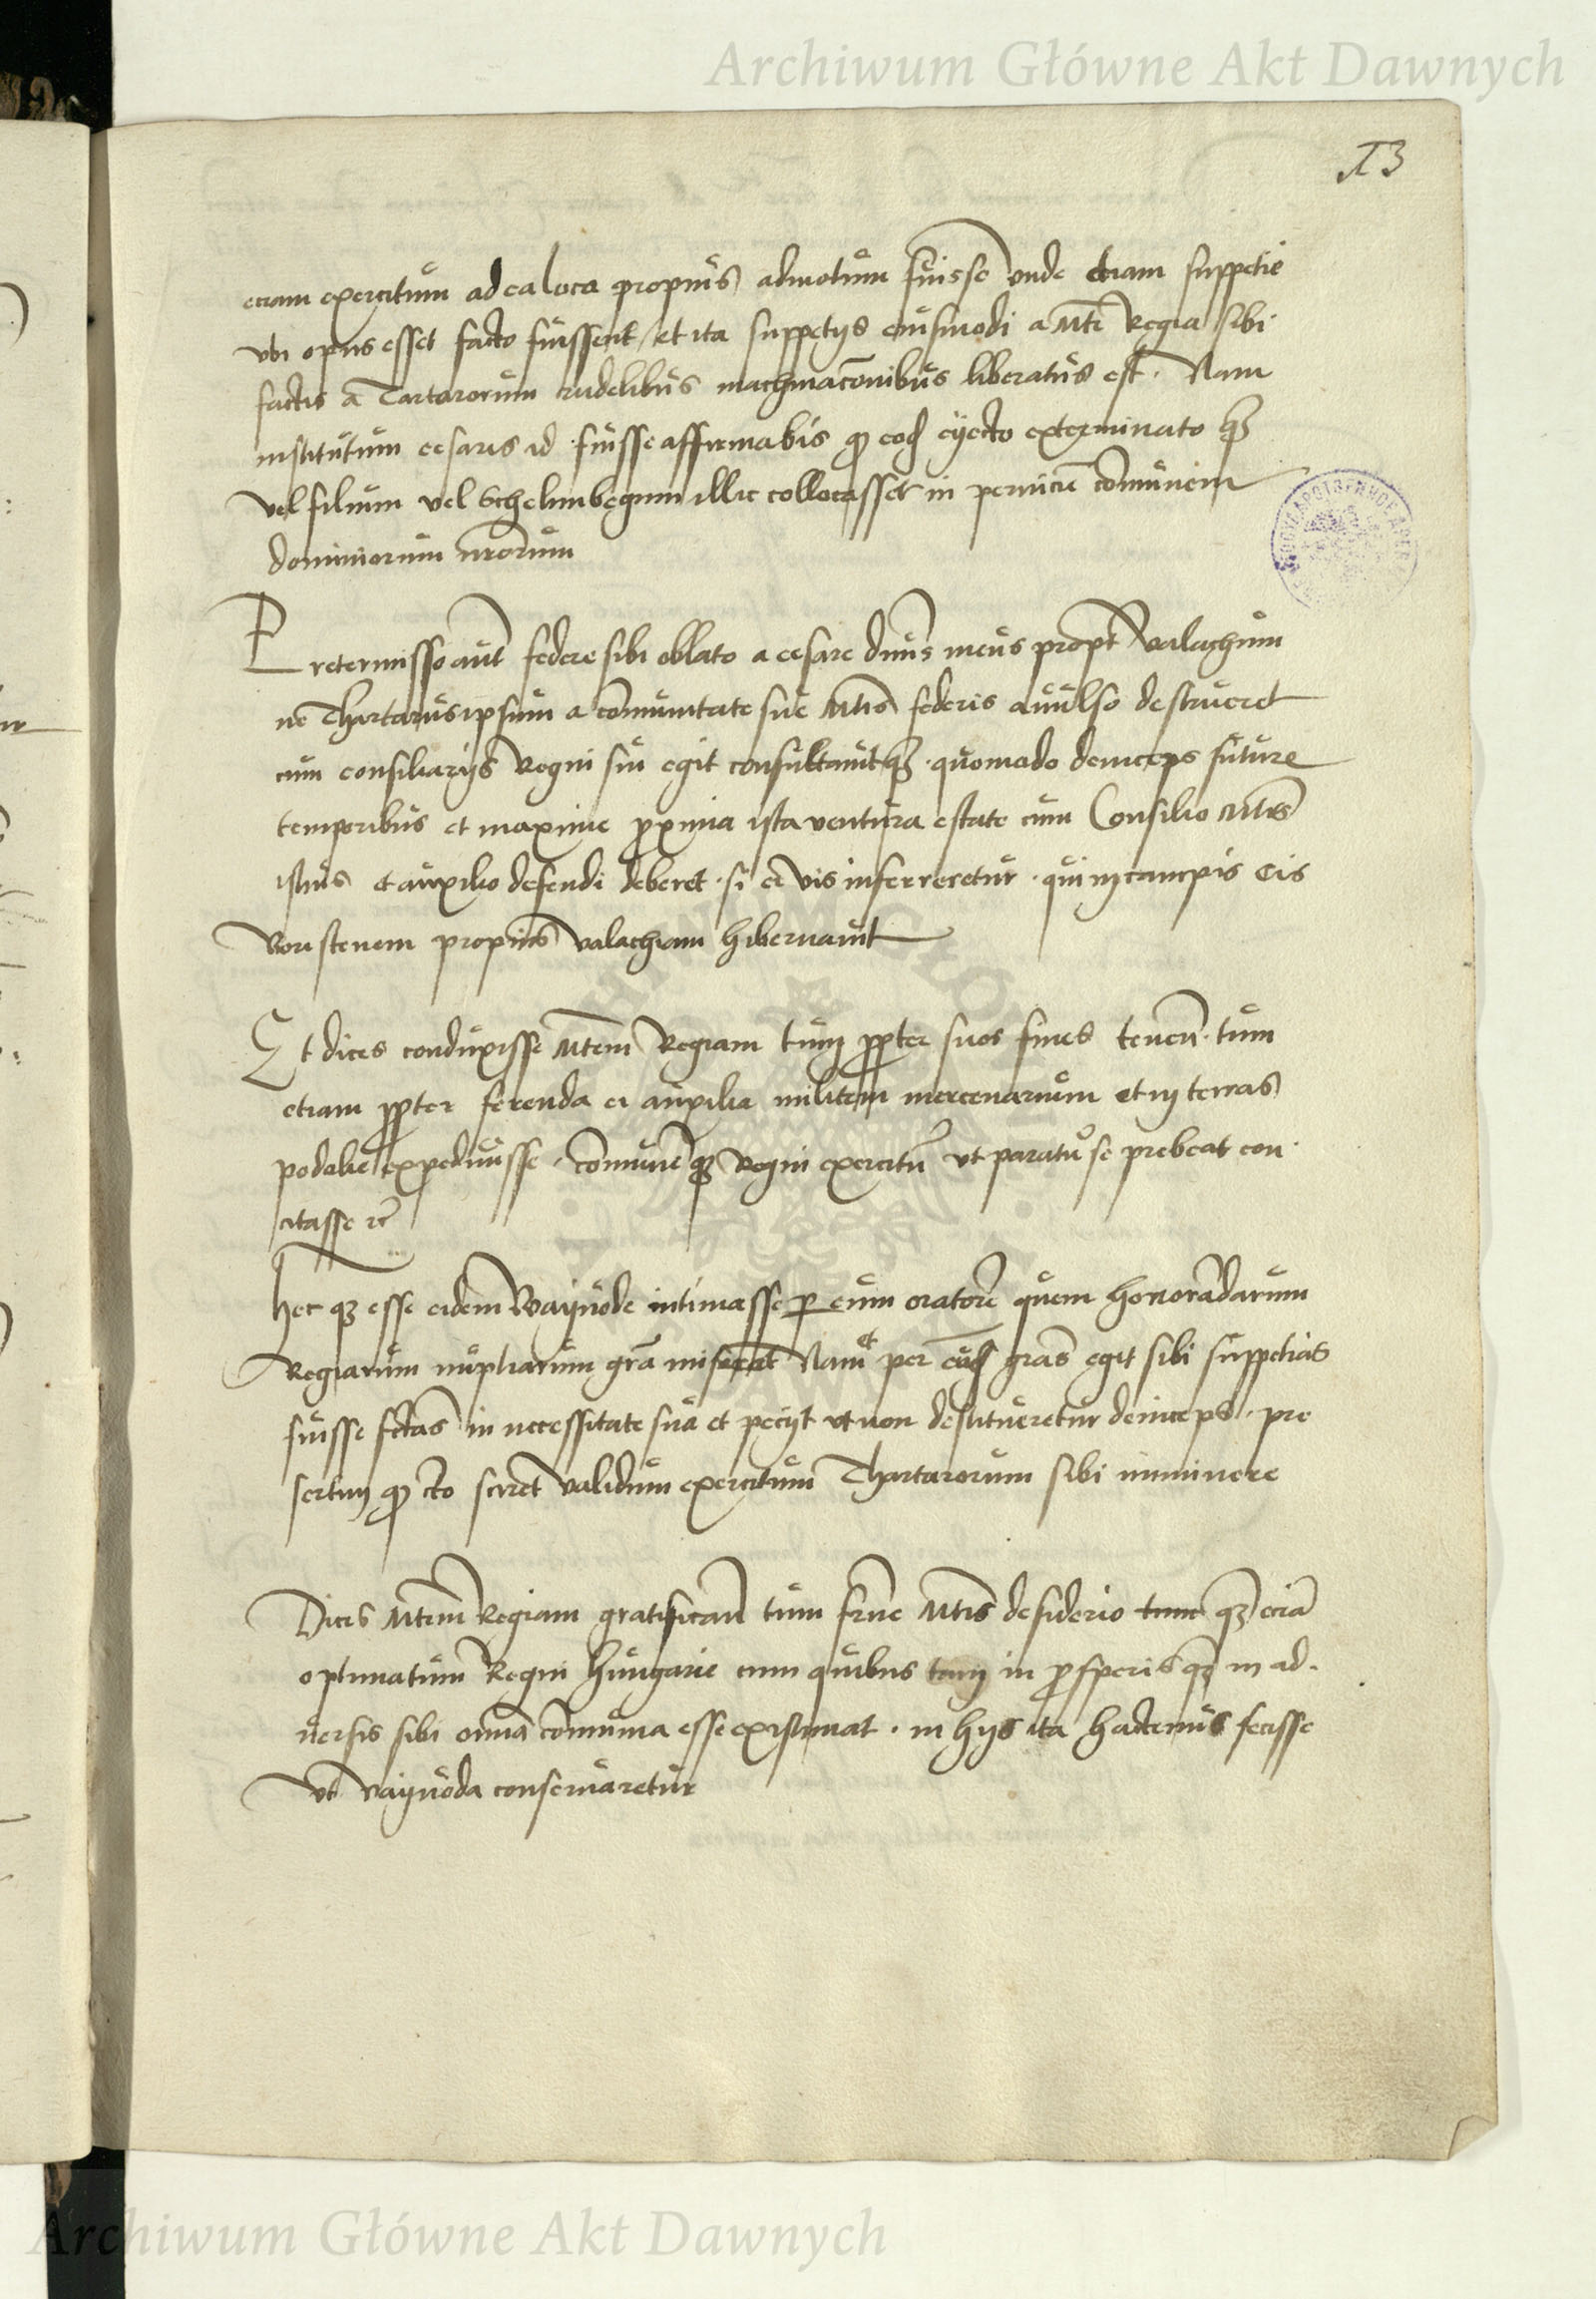 Archiwum Główne Akt Dawnych
13
eciam exercitum ad ea loca propius admotum fuisse unde etiam suppetie
vbi opus esset facte fuissent / et ita suppetijs eiusmodi a Mte Regia sibi
factis a Tartarorum crudelibus machinaconibus liberatus est. Nam
institutum cesaris id fuisse affirmabis eiecto exterminato
vel filium vel Schelimbegum illic collocasset in pernicie comunem
dominiorum nrorum
Pretermisso aut federe sibi oblato a cesare dnus meus propt valachum
ne Thartarus ipsum a comunitate sue Mtis federis auulso destrueret
cum consiliarijs Regni sui egit consultauitq quomodo deinceps future
temporibus et maxime proxima ista ventura estate cum Consilio Mtis
istius et auxilio defendi deberet. si ei vis inferreretur. qui in campis cis
Boristenem propius valachiam hibernauit
Et dices conduxisse Mtem Regiam tum propter suos fines tuen. tum
etiam propter ferenda ei auxilia militem mercenarium et in terras
podolie expediuisse. comunemq Regni exercitu vt paratu se prebeat con
citasse rc
Hec q esse eidem Wayuode intimasse per eum oratore quem honorandarum
Regiarum nuptiarum gra miserat Nam et per gras egit sibi suppetias
fuisse fctas in necessitate sua et peciit vt non destitueretur deinceps. pre
sertim cto sciret validum exercitum Thartarorum sibi imminere
Dices Mtem Regiam gratifican tum frne Mtis desiderio tum q ecia
optimatum Regni Hungarie cum quibus tam in prosperis q in ad
uersis sibi omia comunia esse existimat. in hijs ita hactenus fecisse
vt vayuoda conseruaretur
Archiwum Główne Akt Dawnych